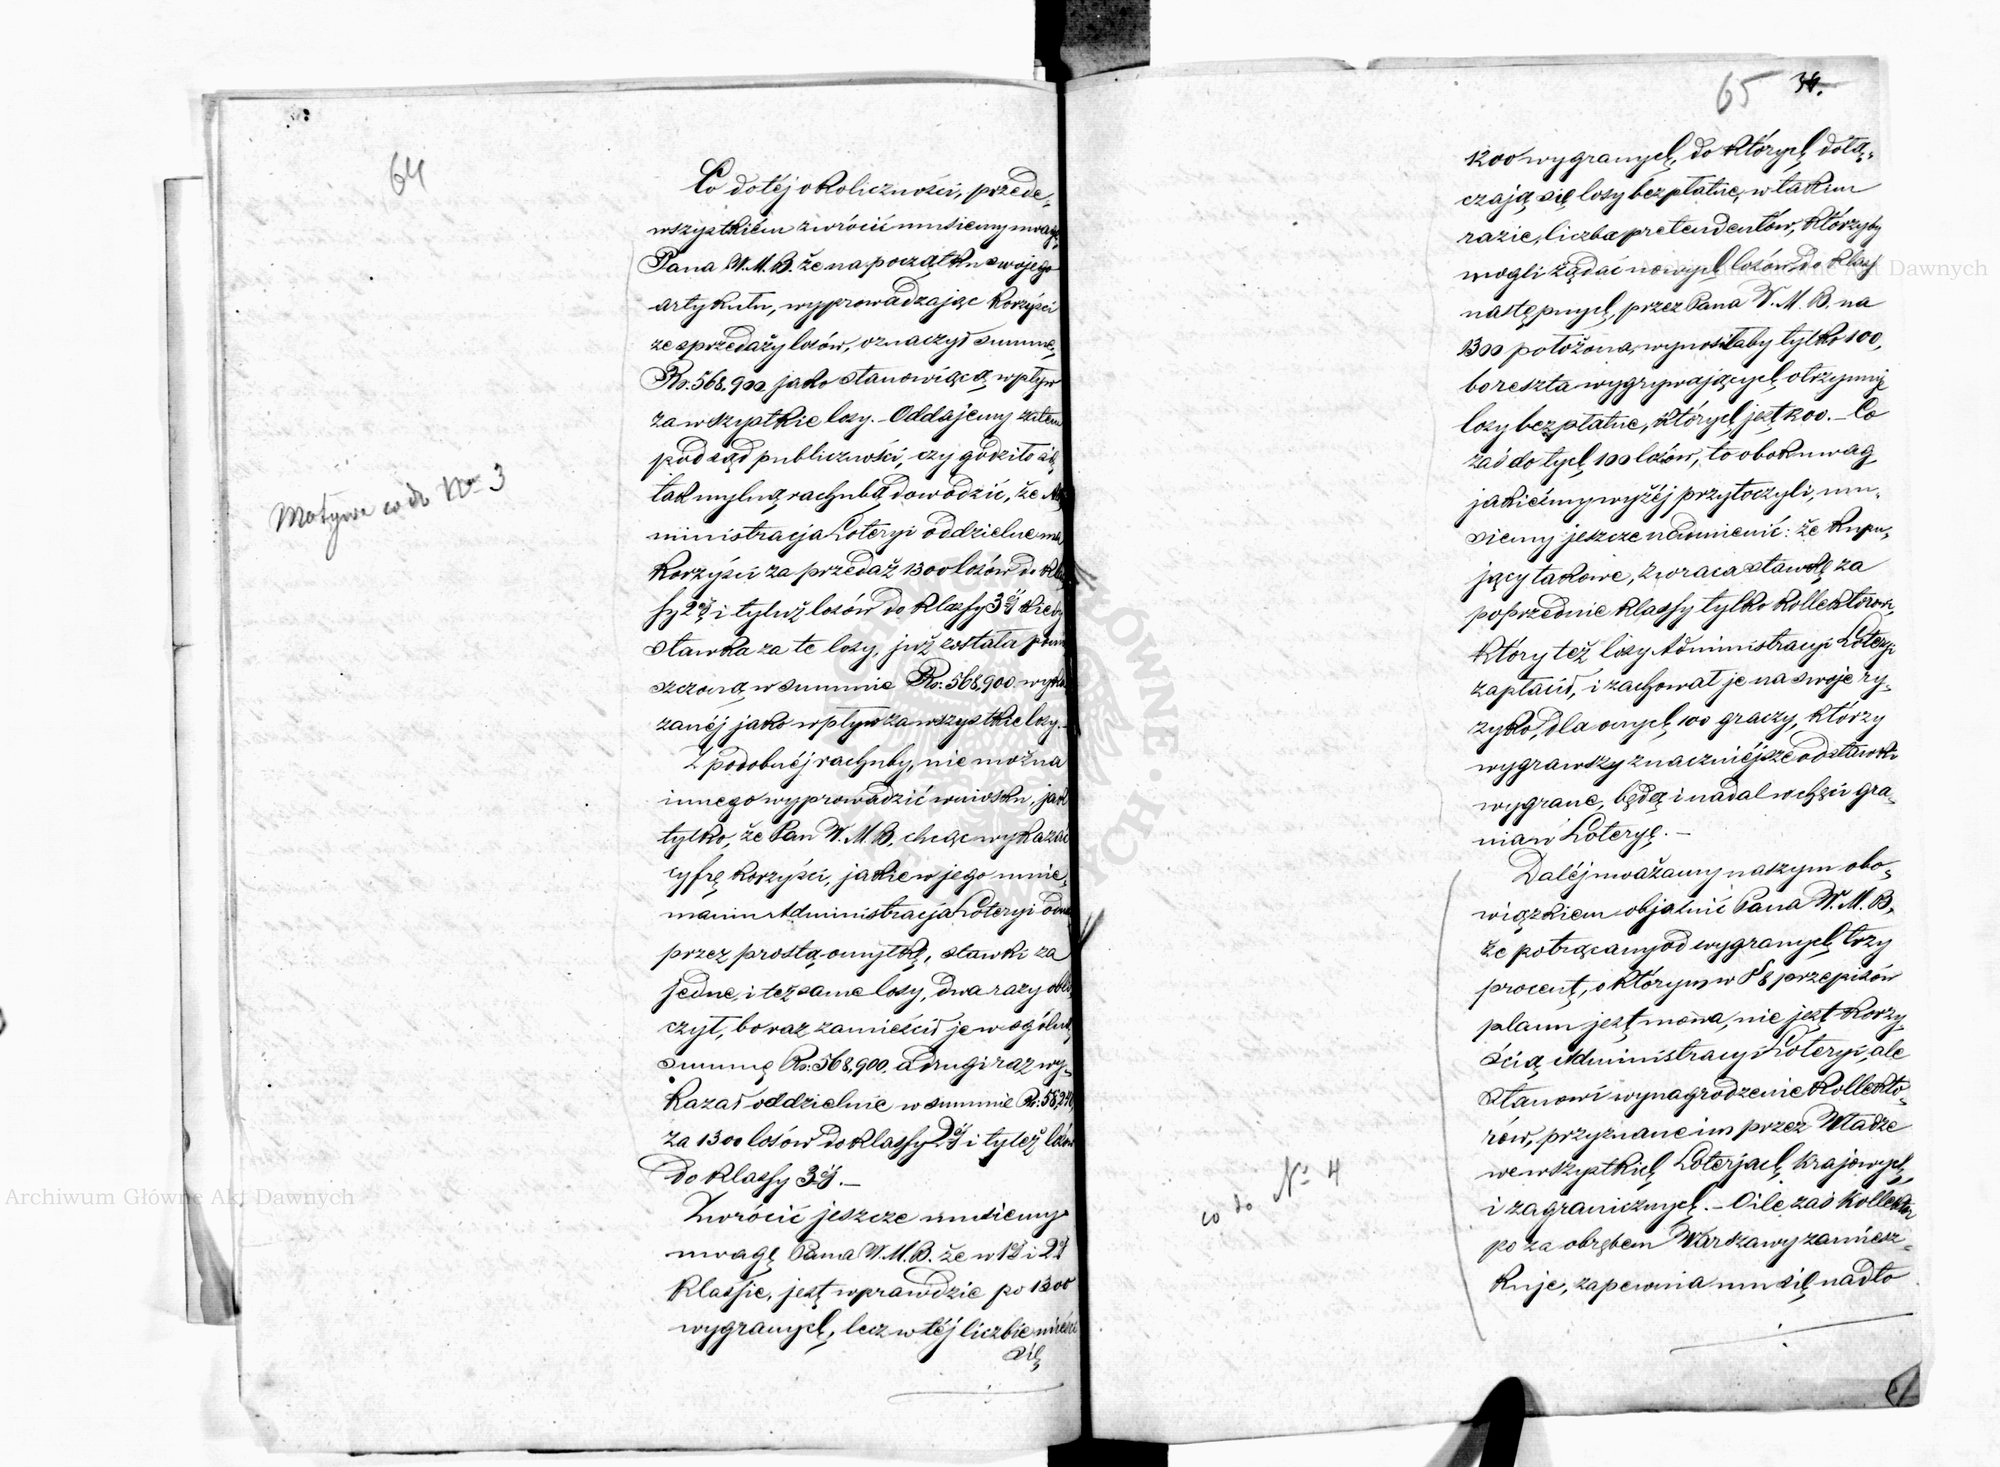 64
Co do téj okoliczności, przede-
wszystkiém zwrócić musiemy uwagę
Pana W. M. B. że na początku swojego
artykułu, wyprowadzając korzyści
ze sprzedaży losów, oznaczył summę
Rs: 568,900 jako stanowiącą wpływ
za wszystkie losy. - Oddajemy zatem
pod sąd publiczności, czy godziło się
tak mylną rachubą dowodzić, że Ad-
ministracja Loteryi oddzielne ma
korzyści za przedaż 1300 losów do klas-
sy 2éj i tyluż losów do klassy 3éj kiedy
stawka za te losy, już została pomie-
szczoną w summie Rs: 568,900 wyka-
zanéj jako wpływ za wszystkie losy. -
Z podobnéj rachuby, nie można
innego wyprowadzić wniosku, jak
tylko, że Pan W. M. B. chcąc wykazać
cyfrę korzyści, jakie w jego mnie-
maniu Administracja Loteryi odnosi
przez prostą omyłkę, stawki za
jedne, i też same losy, dwa razy obli-
czył, bo raz zamieścił je w ogólnéj
summę Rs: 568,900. a drugi raz wy-
kazał oddzielnie w summie Rs: 58,240
za 1300 losów do klassy 2éj i tyleż losów
do klassy 3éj. -
Zwrócić jeszcze musiemy
uwagę Pana W. M. B. że w 1éj i 2éj
klassie, jest wprawdzie po 1300
wygranych, lecz w téj liczbie mieści
się
Motywa co do Nro 3
65 34.
1200 wygranych, do których dołą-
czają się losy bezpłatne, w takim
razie, liczba pretendentów, którzyby
mogli żądać nowych losów do klass
następnych, przez Pana W. M. B. na
1300 położona, wynosiłaby tylko 100,
bo reszta wygrywających otrzymuje
losy bezpłatne, których jest 1200. - Co
zaś do tych 100 losów, to obok uwag
jakieśmy wyżéj przytoczyli, mu-
siemy jeszcze nadmienić: że kupu-
jący takowe, zwraca stawkę za
poprzednie klassy tylko kollektorowi,
który też losy Administracyi Loteryi
zapłacił, i zachował je na swoje ry-
zyko, dla onych 100 graczy, którzy
wygrawszy znaczniejsze od stawki
wygrane, będą i nadal w chęci gra-
nia w Loteryę. -
Daléj uważamy naszym obo-
wiązkiem objaśnić Pana W. M. B,
że potrącany od wygranych trzy
procent, o którym w § 8 przepisów
planu jest mowa, nie jest korzy-
ścią Administracyi Loteryi, ale
stanowi wynagrodzenie kollekto-
rów, przyznane im przez Władze
we wszystkich Loterjach krajowych,
i zagranicznych. - O ile zaś Kollektor
po za obrębem Warszawy zamiesz-
kuje, zapewnia mu się nadto
co do No 4
Archiwum Główne Akt Dawnych
Archiwum Główne Akt Dawnych